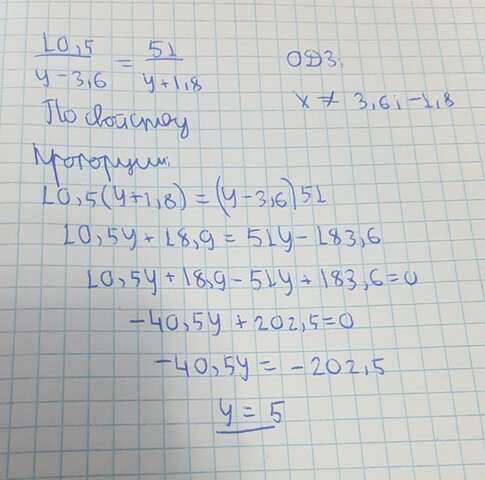 10,5 / y-3,6 = 51 / y+1,8
ОДЗ:
x ≠ 3,6; -1,8
По свойству
пропорции:
10,5(y+1,8) = (y-3,6)51
10,5y + 18,9 = 51y - 183,6
10,5y + 18,9 - 51y + 183,6 = 0
-40,5y + 202,5 = 0
-40,5y = -202,5
y = 5